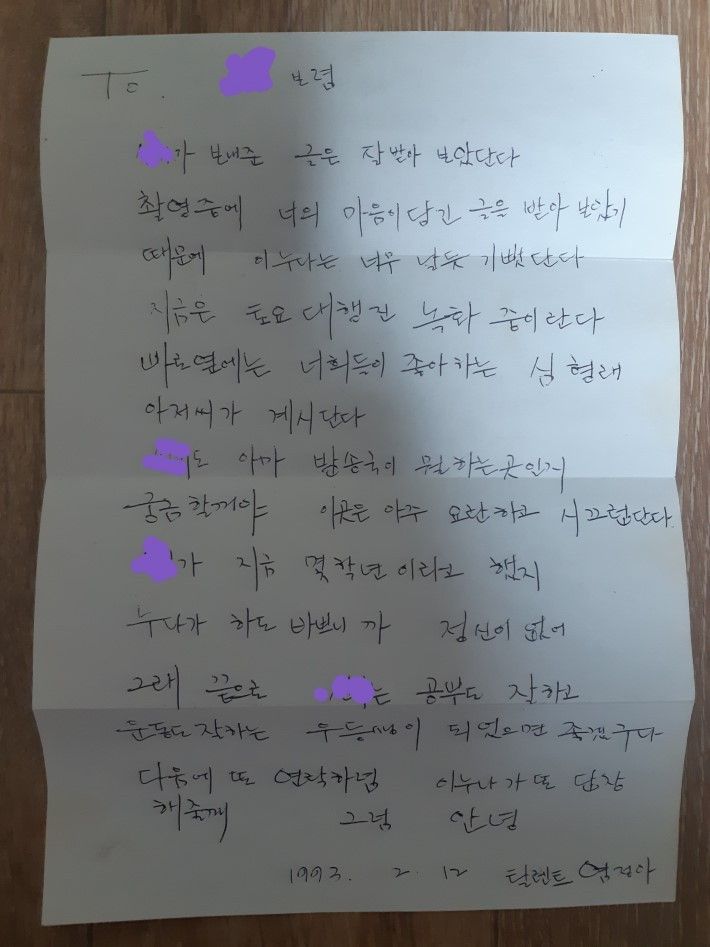 To. 보렴
가 보내준 글은 잘 받아 보았단다
촬영중에 너의 마음이 담긴 글을 받아 보았기
때문에 이누나는 너무 날듯 기뻤단다
지금은 토요 대행진 녹화 중이란다
바로옆에는 너희들이 좋아하는 심형래
아저씨가 계시단다
도 아마 방송국이 뭘 하는곳인지
궁금할꺼야 이곳은 아주 요란하고 시끄럽단다.
가 지금 몇학년 이라고 했지
누나가 하도 바쁘니까 정신이 없어
그래 끝으로 는 공부도 잘하고
운동도 잘하는 우등생이 되었으면 좋겠구나
다음에 또 연락하렴 이누나가 또 답장
해줄께 그럼 안녕
1993. 2. 12 탈렌트 엄정아